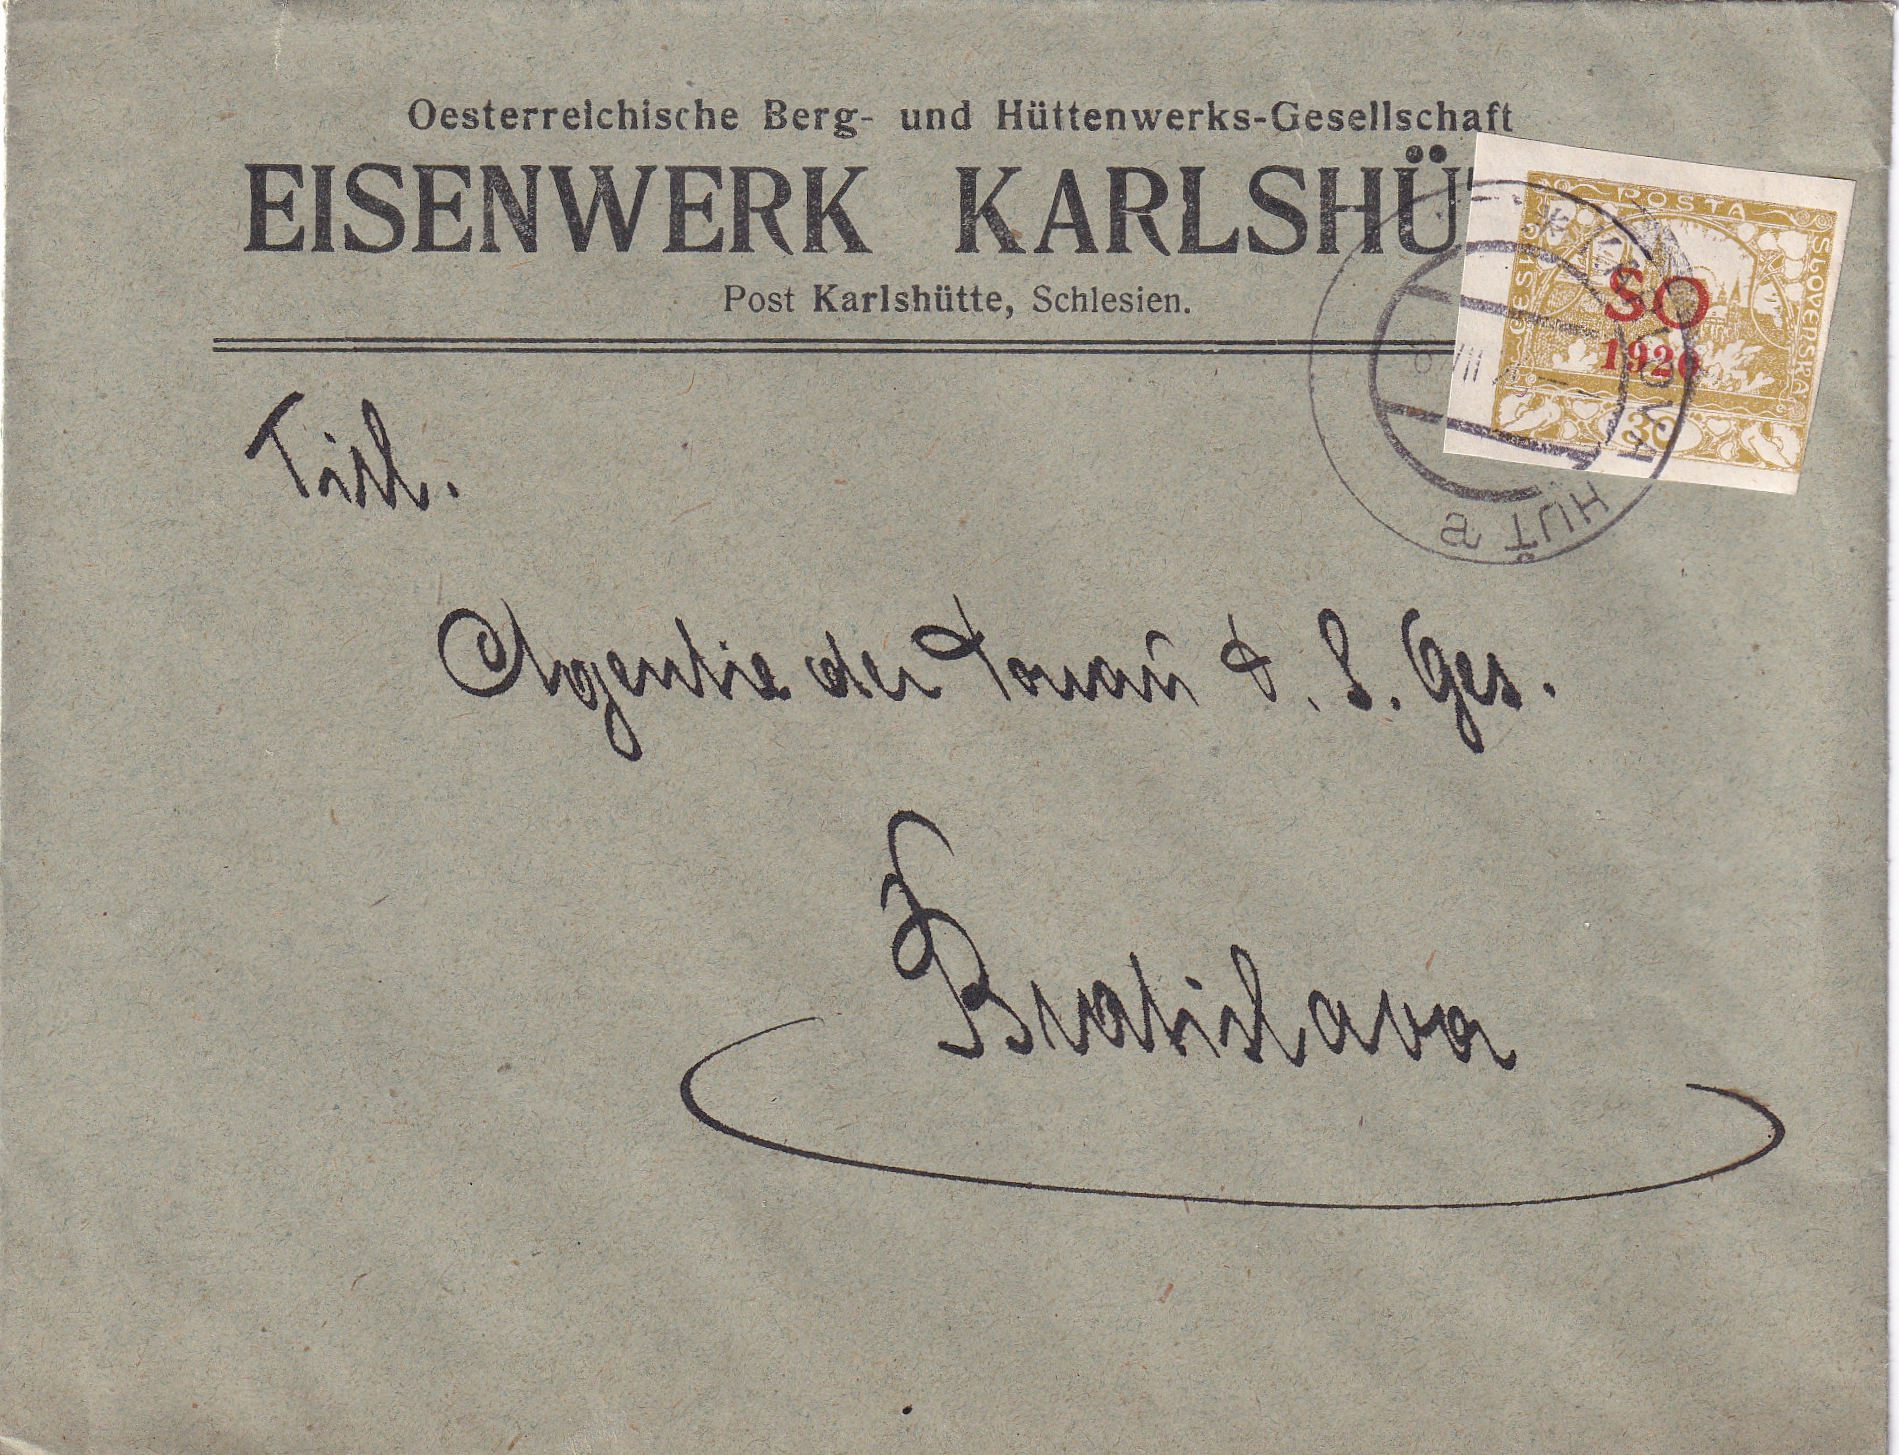 Oesterreichische Berg- und Hüttenwerks-Gesellschaft
EISENWERK KARLSHÜ
Post Karlshütte, Schlesien.
POSTA
ČESKO
SLOVENSKÁ
SO
1920
30
KARLOVA
HUŤ a
VIII
Titl.
Agentie der Donau D. S. Ges.
Bratislava